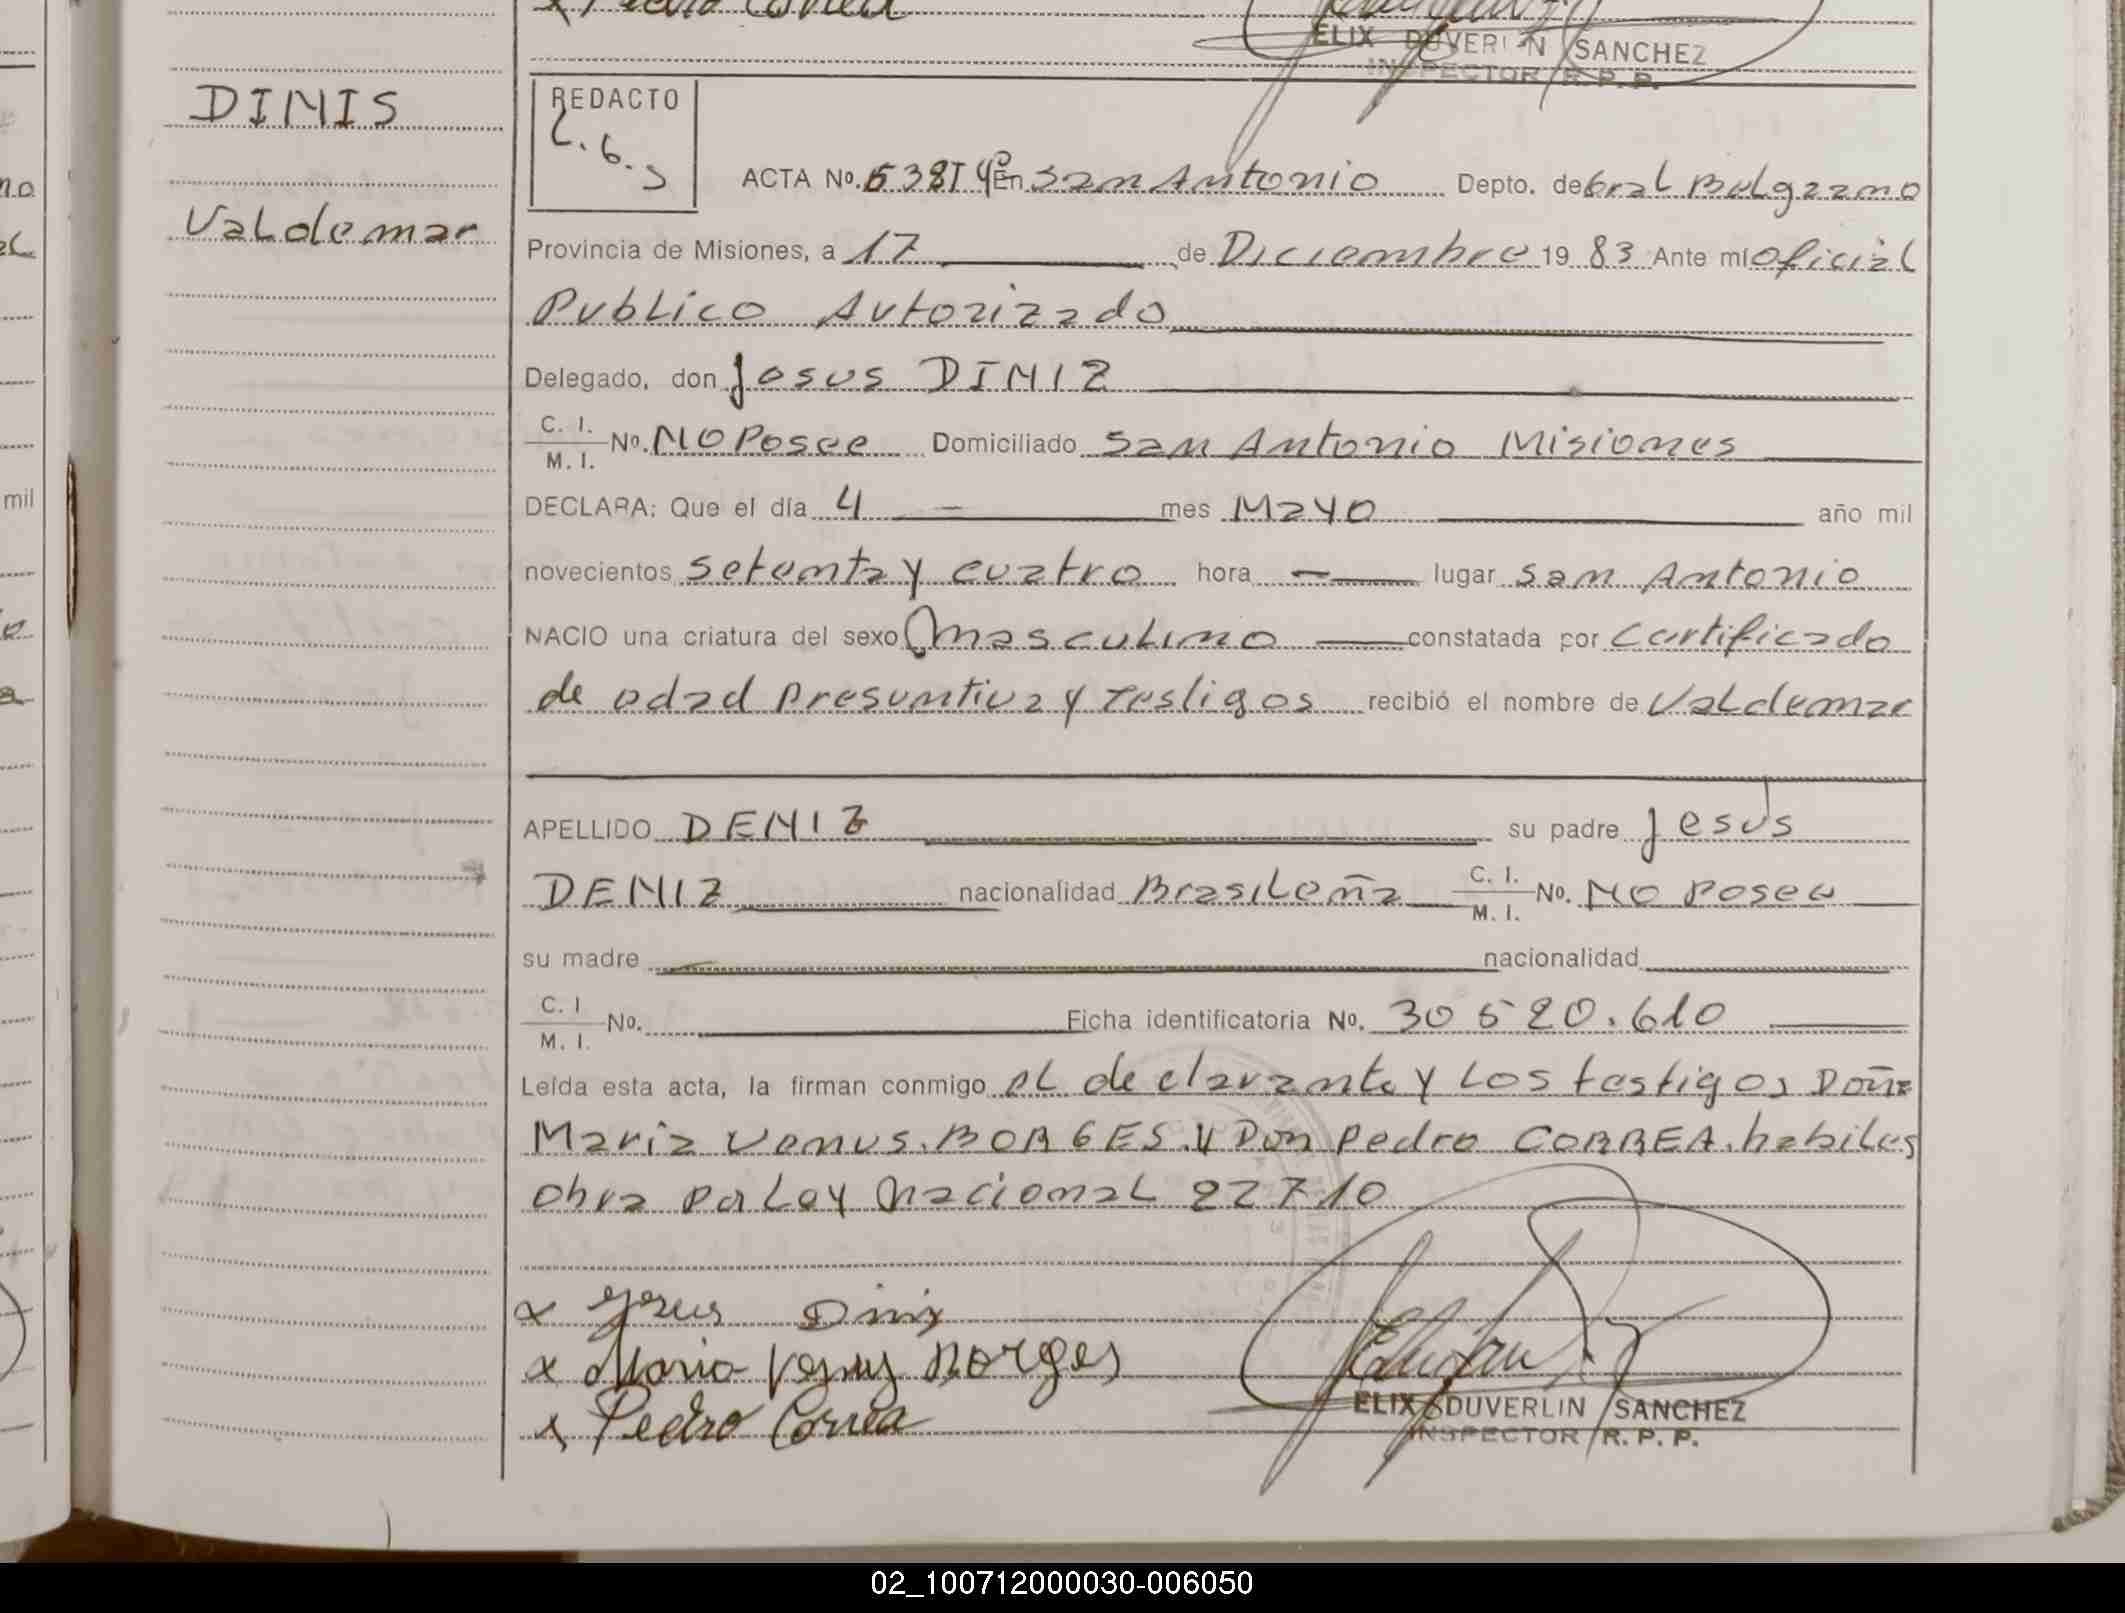 x Pedro Correa
ELIX DUVERLIN SANCHEZ
INSPECTOR R. P. P.
DINIS
Valdemar
REDACTO
L.G.S
ACTA Nº. 538 T 4º En San Antonio Depto. de Gral Belgrano
Provincia de Misiones, a 17 de Diciembre 19 83 Ante mí oficial
Publico Autorizado
Delegado, don Jesus DINIZ
C. I.
M. I. Nº. NO Posee Domiciliado San Antonio Misiones
DECLARA: Que el día 4 mes Mayo año mil
novecientos setenta y cuatro hora — lugar San Antonio
NACIO una criatura del sexo masculino constatada por Certificado
de edad Presuntiva y Testigos recibió el nombre de Valdemar
APELLIDO DENIZ su padre Jesus
DENIZ nacionalidad Brasileña C. I.
M. I. Nº. NO Posee
su madre nacionalidad
C. I
M. I. Nº. Ficha identificatoria Nº. 30 520.610
Leída esta acta, la firman conmigo el declarante y Los testigos Doña
Maria Venus BORGES y Don Pedro CORREA. habiles
obra por Ley Nacional 22710
x Jesus Diniz
x Maria Venus Borges
x Pedro Correa
ELIX DUVERLIN SANCHEZ
INSPECTOR R. P. P.
mil
02_100712000030-006050